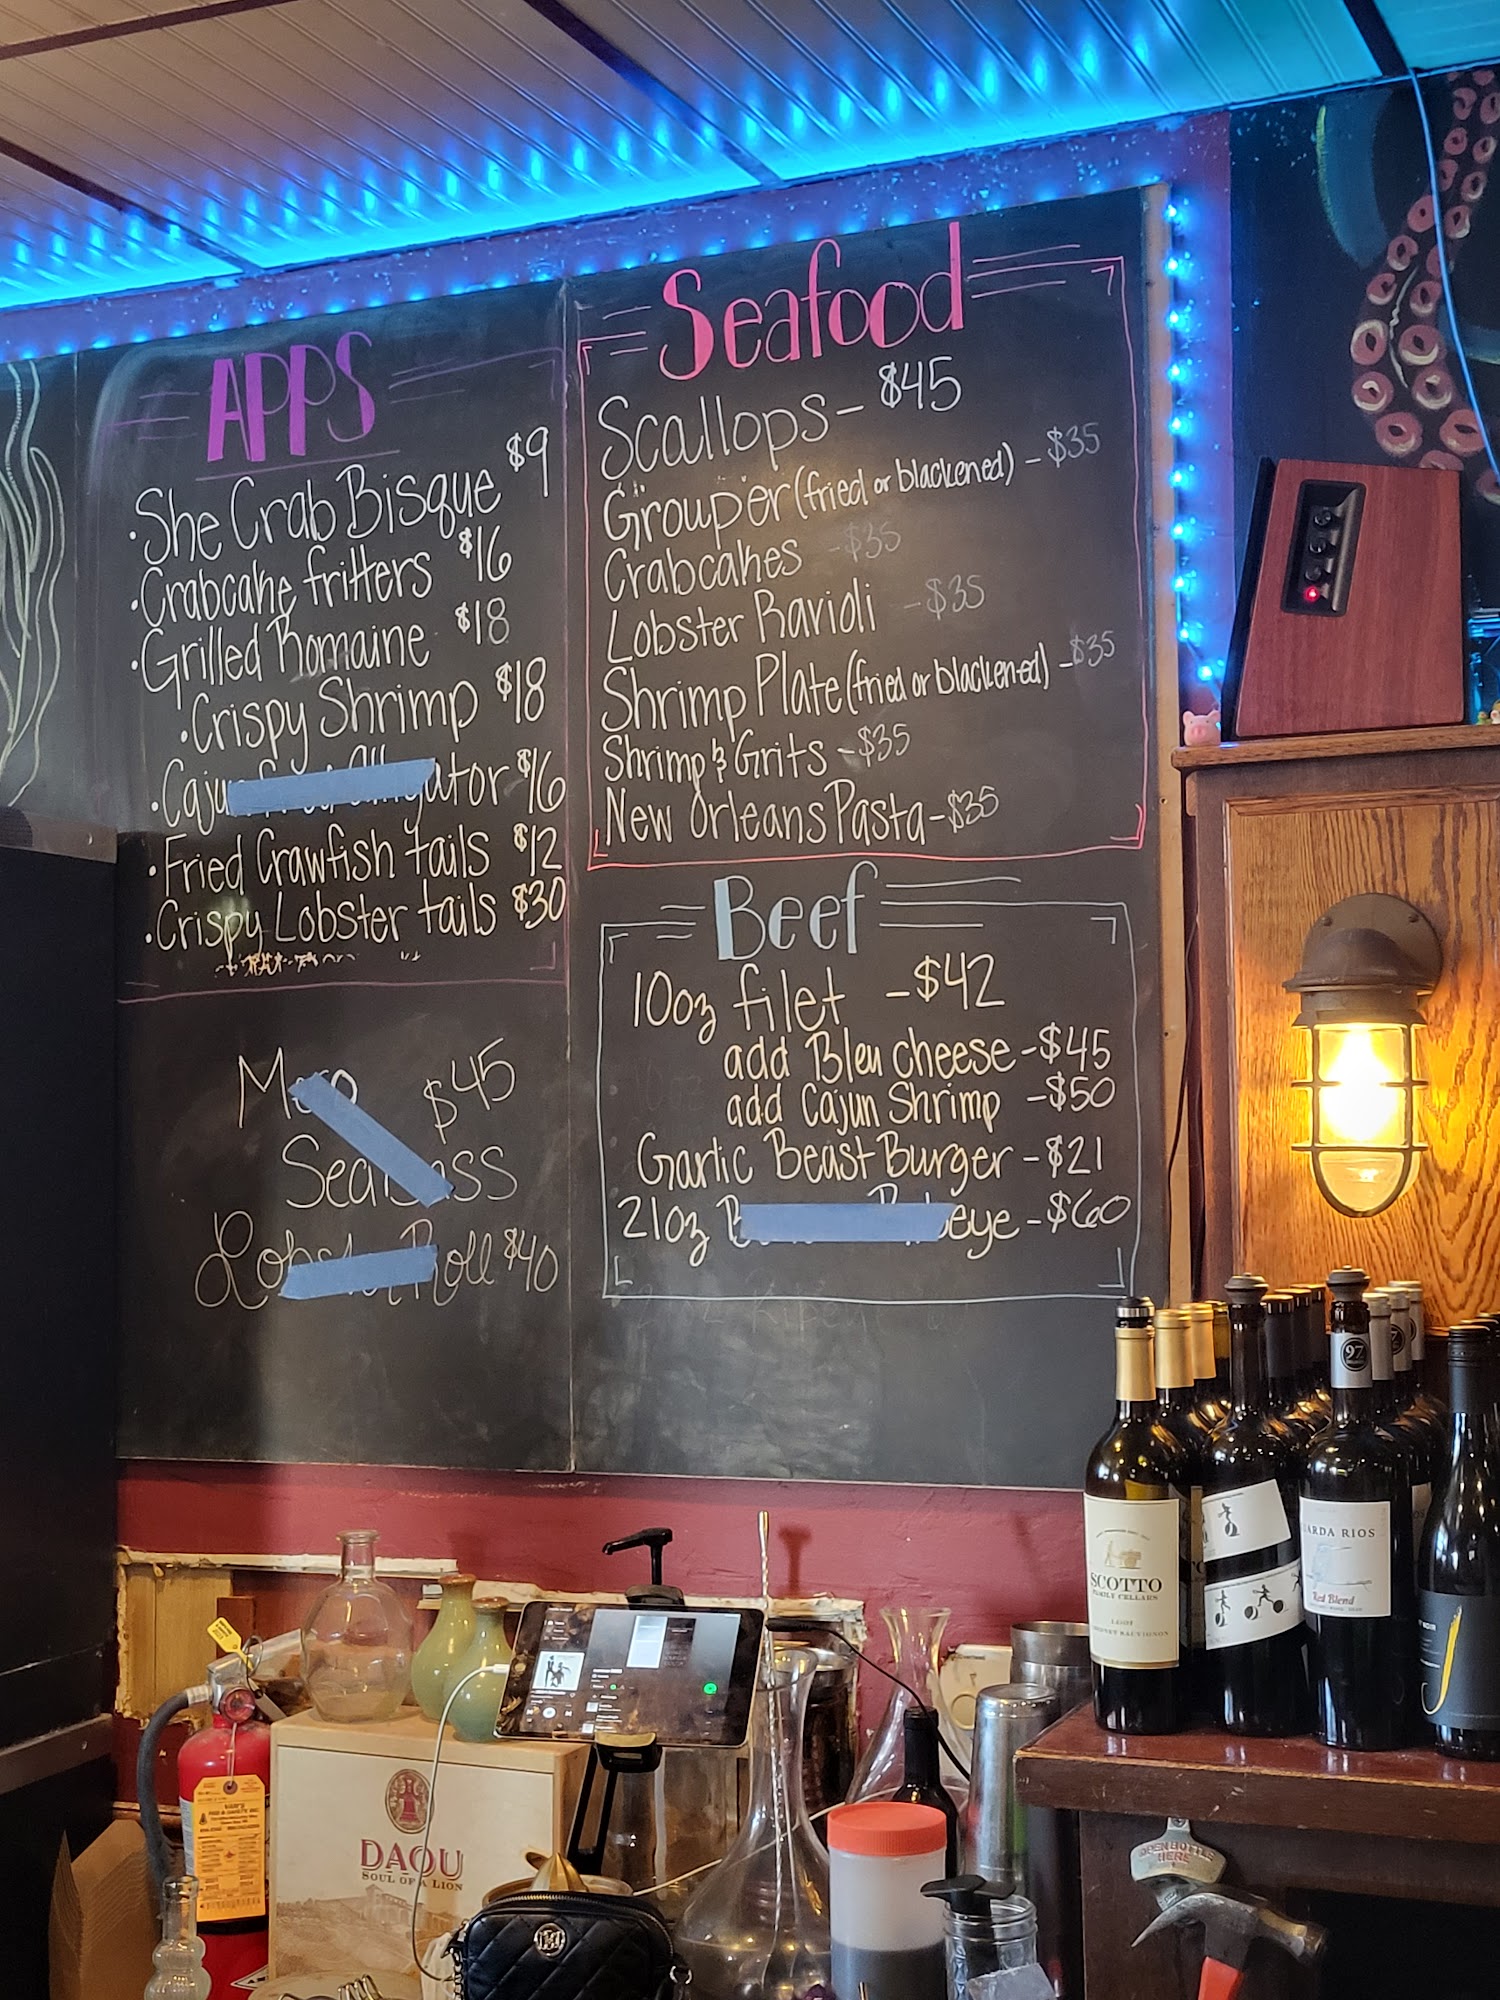 APPS
• She Crab Bisque $9
• Crabcake fritters $16
• Grilled Romaine $18
• Crispy Shrimp $18
• $16
• Fried Crawfish tails $12
• Crispy Lobster tails $30
$45
Roll $40
Seafood
Scallops - $45
Grouper (fried or blackened) - $35
Crabcakes - $35
Lobster Ravioli - $35
Shrimp Plate (fried or blackened) - $35
Shrimp & Grits - $35
New Orleans Pasta - $35
Beef
10oz filet - $42
add Bleu cheese - $45
add Cajun Shrimp - $50
Garlic Beast Burger - $21
21oz - $60
97
SCOTTO
FAMILY CELLARS
CABERNET SAUVIGNON
ARDA RIOS
Red Blend
NOIR
DAOU
SOUL OF A LION
OPEN BOTTLE
HERE